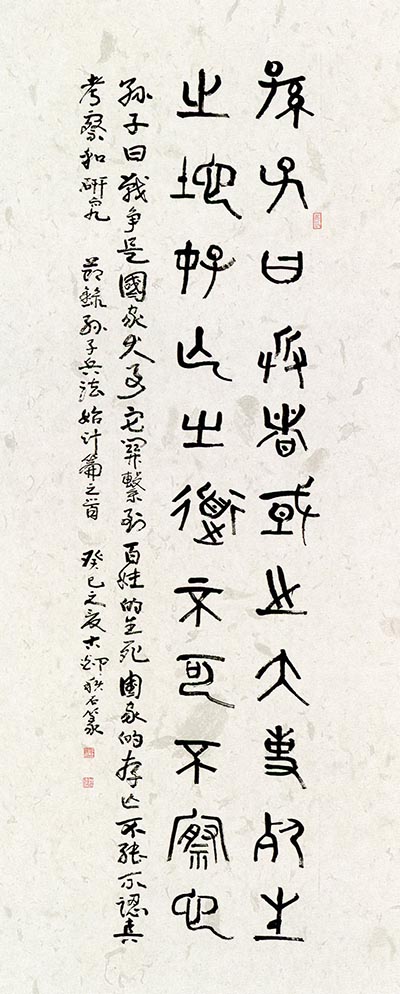 孫子曰兵者或之大事死生
之地存亡之道不可不察也
孫子曰戰争是國家大事它關繫到百姓的生死國家的存亡不能不認真
考察和研究 節錄孫子兵法始计篇之首 癸巳之夏古